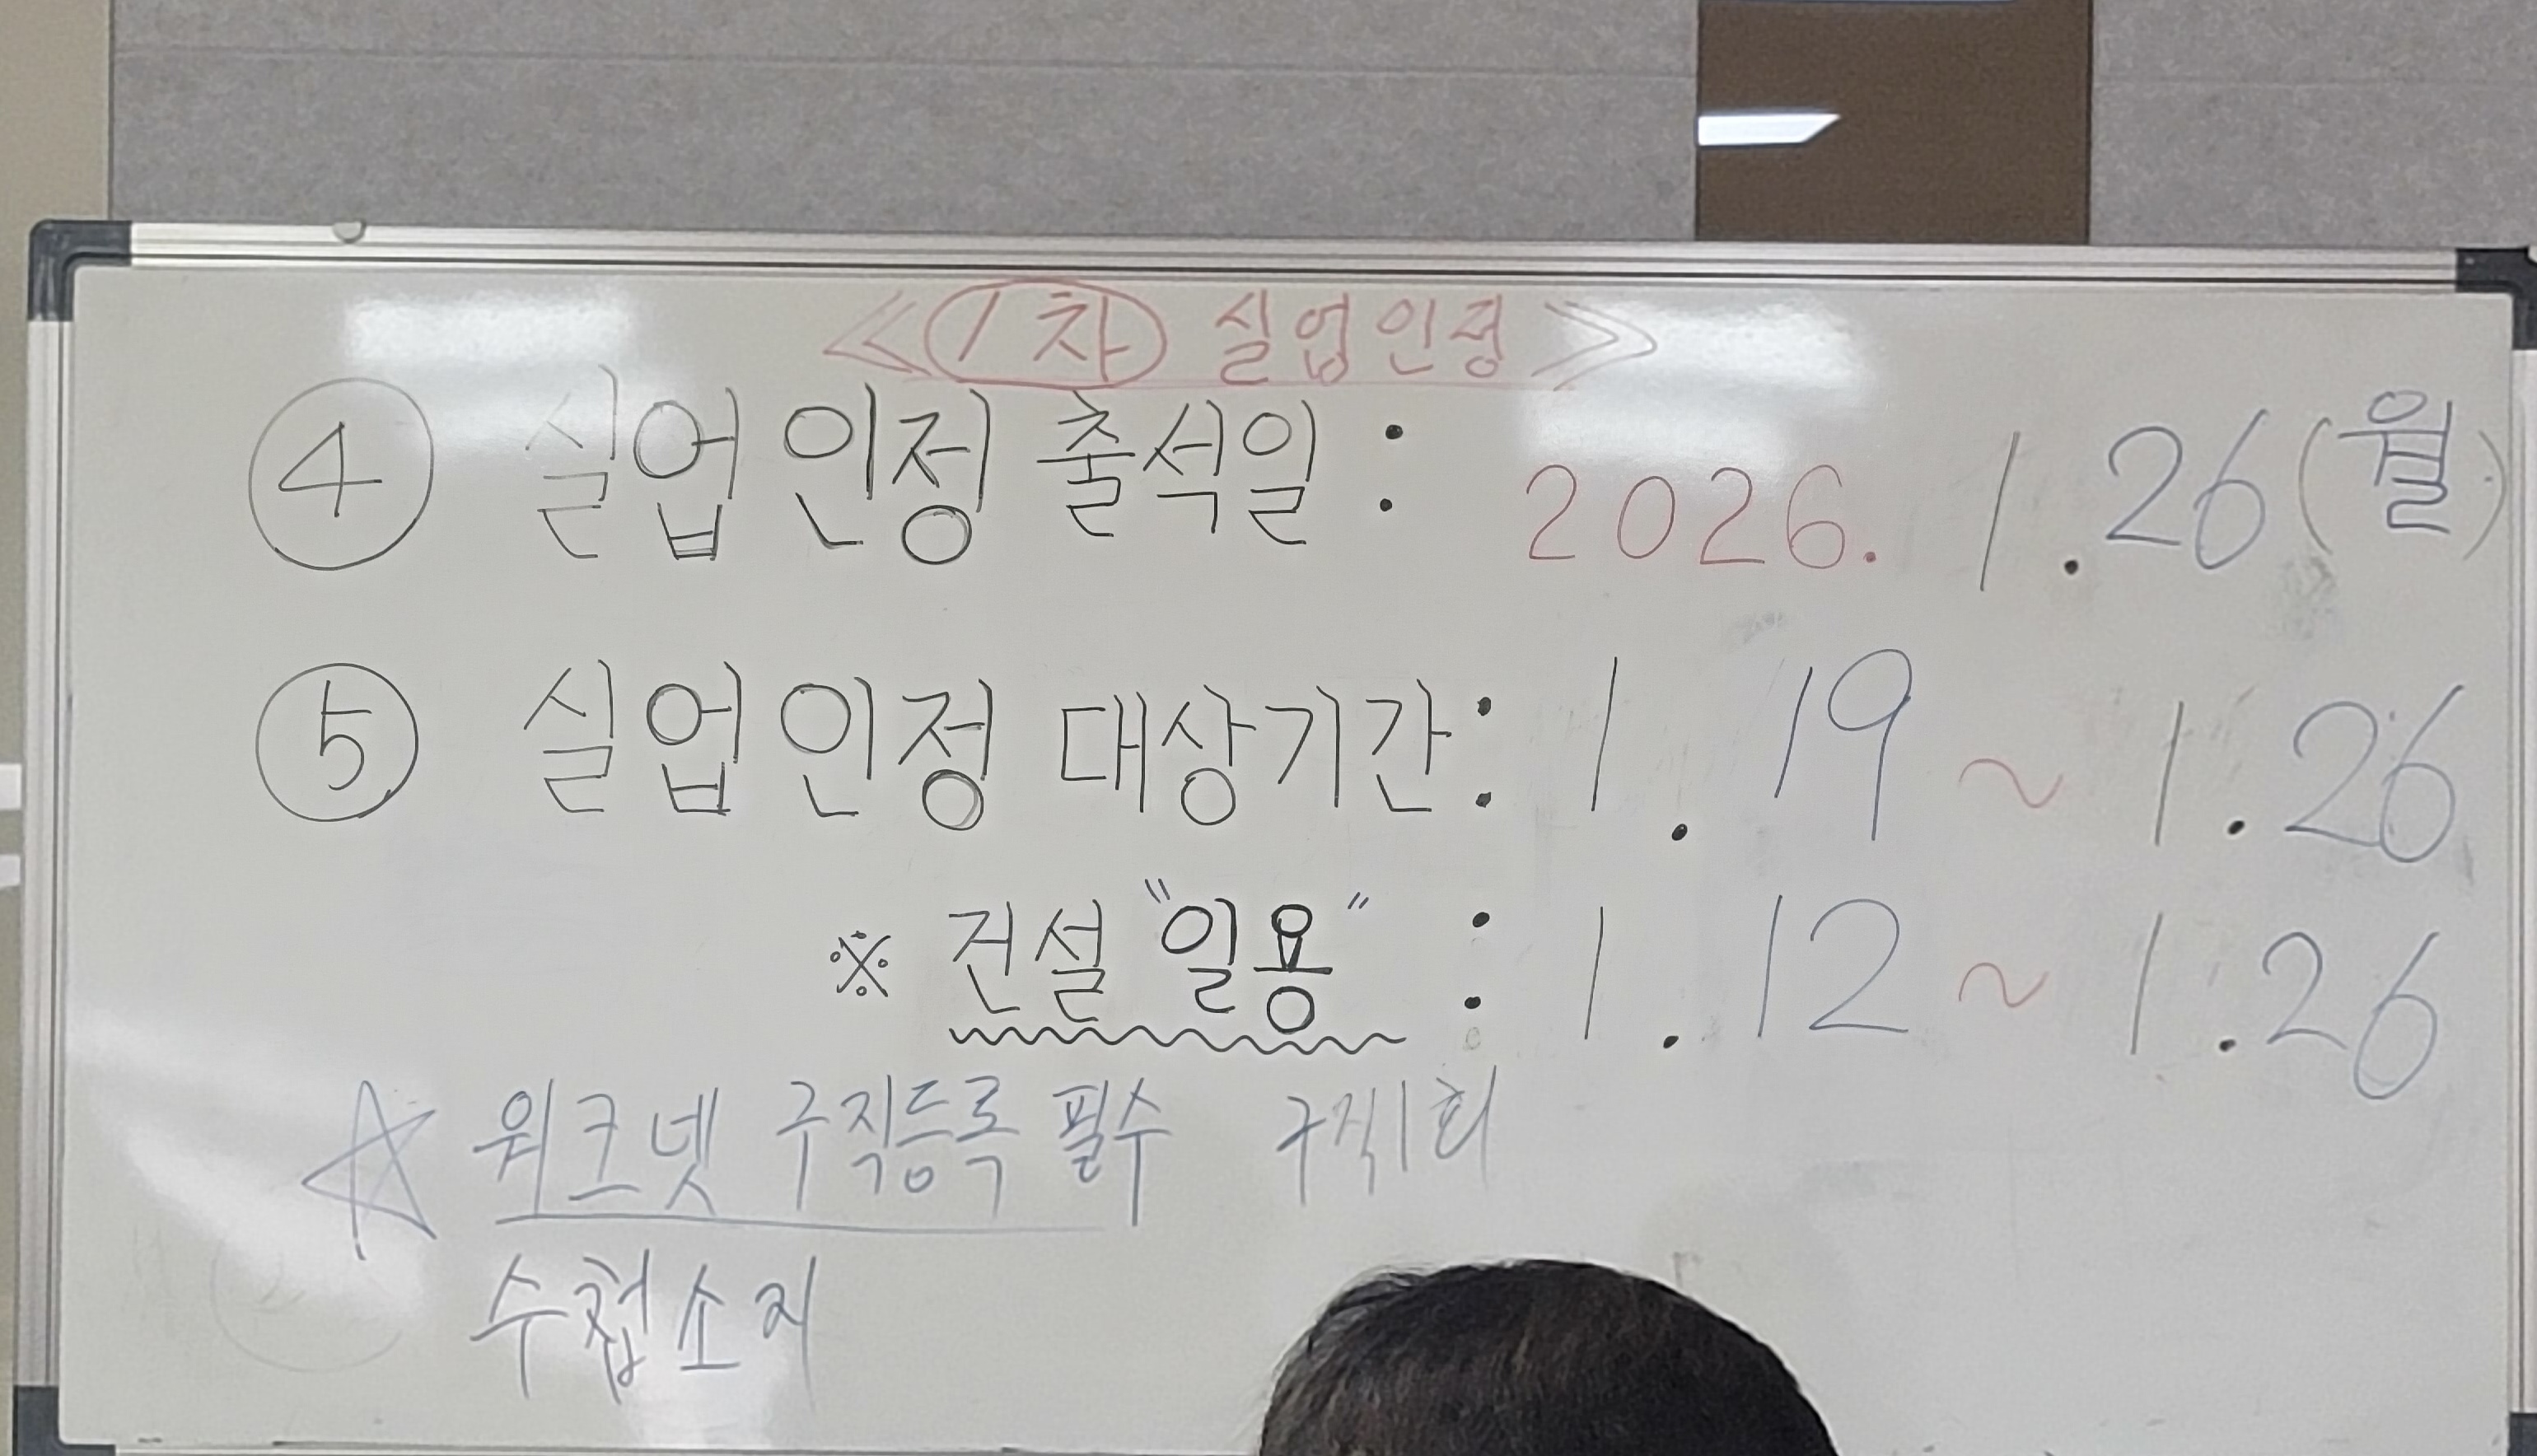 ≪1차 실업인정≫
④ 실업인정 출석일 : 2026. 1.26(월)
⑤ 실업인정 대상기간: 1. 19 ~ 1.26
※ 건설 "일용" : 1. 12 ~ 1.26
☆ 워크넷 구직등록 필수 구직1회
수첩소지